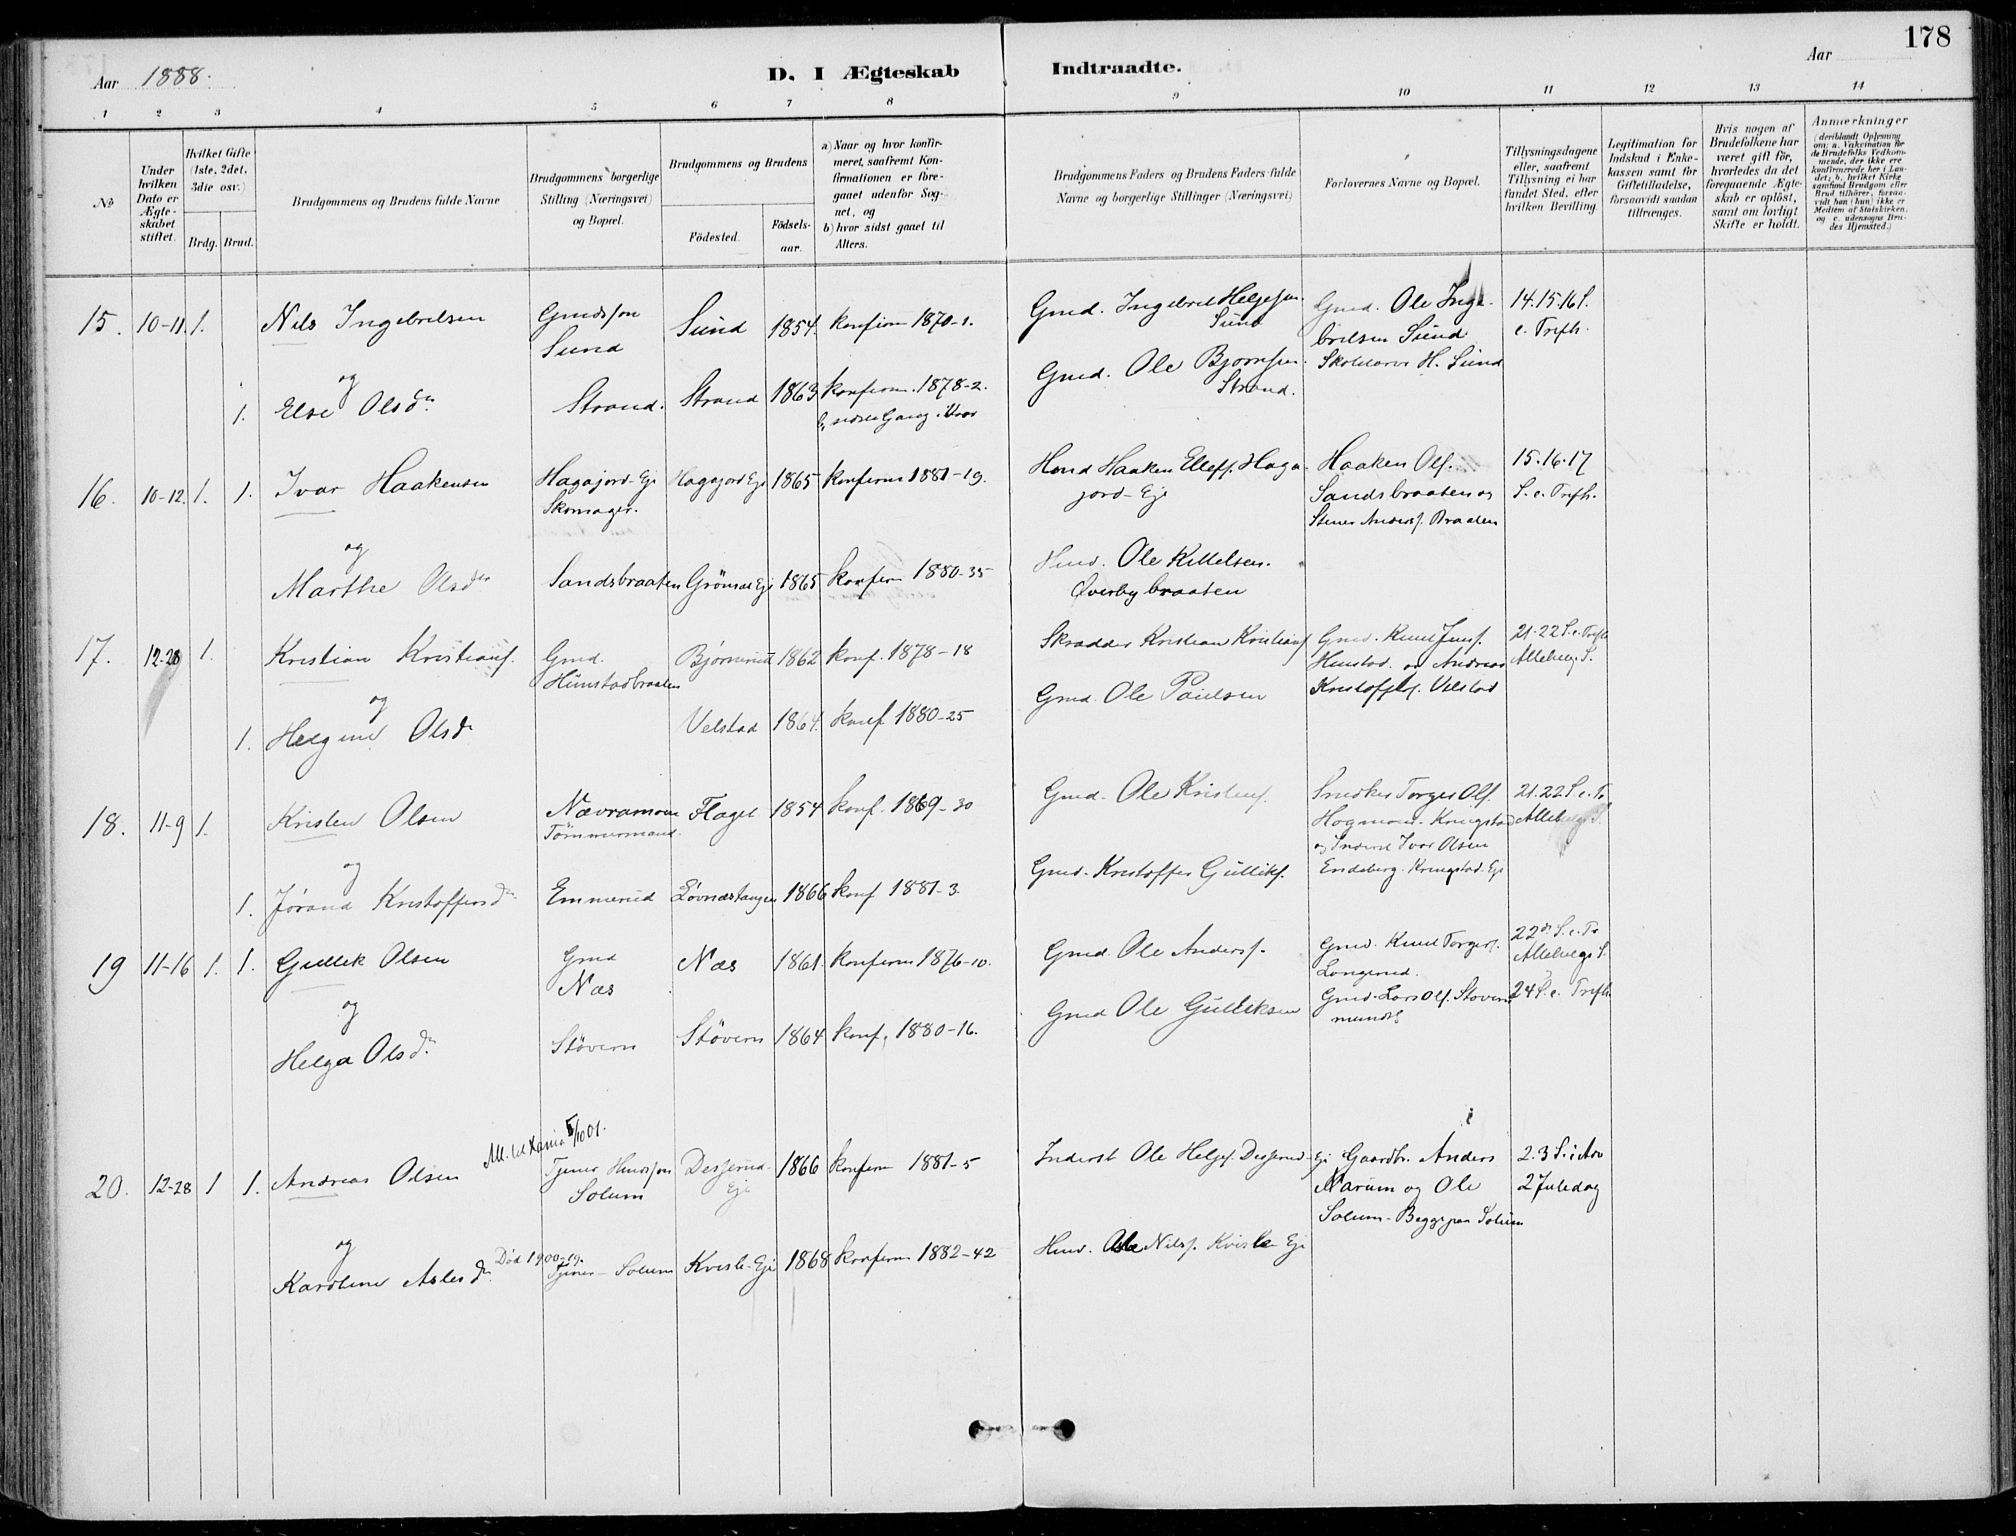 178
Aar 1888.
D. I Ægteskab Indtraadte.
Aar
1 2 3 4 5 6 7 8 9 10 11 12 13 14
No
Under hvilken Dato er Ægteskabet stiftet.
Hvilket Gifte (1ste, 2det, 3die osv.)
Brdg. Brud.
Brudgommens og Brudens fulde Navne
Brudgommens borgerlige Stilling (Næringsvei) og Bopæl.
Brudgommens og Brudens
Fødested.
Fødselsaar.
a) Naar og hvor konfirmeret, saafremt Konfirmationen er foregaaet udenfor Sognet, og
b) hvor sidst gaaet til Alters.
Brudgommens Faders og Brudens Faders fulde Navne og borgerlige Stillinger (Næringsvei)
Forlovernes Navne og Bopæl.
Tillysningsdagene eller, saafremt Tillysning ei har fundet Sted, efter hvilken Bevilling.
Legitimation for Indskud i Enkekassen samt for Giftetilladelse, forsaavidt saadan tiltrænges.
Hvis nogen af Brudefolkene har været gift før, hvorledes da det foregaaende Ægteskab er opløst, samt om lovligt Skifte er holdt.
Anmærkninger
(deriblandt Oplysning om: a. Vakcination for de Brudefolks Vedkommende, der ikke ere konfirmerede her i Landet; b. hvilket Kirkesamfund Brudgom eller Brud tilhører, forsaavidt han (hun) ikke er Medlem af Statskirken, og c. udensogns Brudes Hjemsted.)
15. 10-11. 1. Nils Ingebrelsen Gmdssøn Sund Sund 1854. konfirm 1870-1. Gmd. Ingebret Helgesen Sund Gmd. Ole Ingebrelsen Sund Skolelærer H. Sund 14.15.16 S. e. Trefh.
og
1. Else Olsdr. Strand. Strand 1863 konfirm. 1878-2. Gmd. Ole Bjørnsen Strand.
16. 10-12. 1. 1. Ivar Haakensen Hagajord-Eje Skomager. Hagajord Eje 1865 konfirm 1881-19. Hmd Haaken Ellefs. Hagajord-Eje Haaken Ols. Sandsbraaten og Stener Anders. Braaten 15.16.17 S. e. Trefh.
og
Marthe Olsdr Sandsbraaten Grönsae Eje 1865 konfirm 1880-35 Hmd. Ole Kittelsen. Overbybraaten
17. 12-28 1. Kristian Kristians. Gmd. Hunstadbraaten Bjørnerud 1862 konf. 1878-18 Skrædder Kristian Kristians Gmd. Knud Jens. Hunstad. og Andreas Kristoffers. Velstad 21.22 S. e. Trefh Allehelg. S.
og
1. Helgine Olsdr Velstad 1864. konf 1880-25 Gmd. Ole Paulsen
18. 11-9 1. Kristen Olsen Nævramoen Tømmermand. Flaget 1854 konf. 1869-30 Gmd. Ole Kristens. Snedker Torger Ols. Hogmoen. Kringstad og Inderst Ivar Olsen Endeberg. Kringstad-Eje 21.22 S. e. Tr. Allehelg. S.
og
1. Jørand Kristoffersdr Emmerud Lövnæstangen 1866 konf 1881-3. Gmd. Kristoffer Gulliks.
19 11-16 1. 1. Gullik Olsen Gmd Næs Næs 1861 konfirm 1876-10. Gmd. Ole Anders. Gmd. Knud Torgers. Langerud. Gmd. Lars Ols. Støvern 22de S. e. Tr Allehelgs S. 24 S. e. Trefh
og
Helga Olsdr. Støvern Støvern 1864 konf. 1880-16. Gmd Ole Gulliksen
20. 12-28 1 1. Andreas Olsen Att. til Xania 5/10 01. Tjener Solum Desserud-Eje 1866 konfirm 1881-5 Inderst Ole Helges. Desserud-Eje Gaardbr. Anders Narum og Ole Solum-Begge paa Solum 2.3 S. i Adv 2 Juledag
og
Karoline Aslesdr. Død 1900-19. Tjener-Solum Kvisle-Eje 1868 konfirm 1882-42 Hmd. Asle Nils. Kvisle-Eje